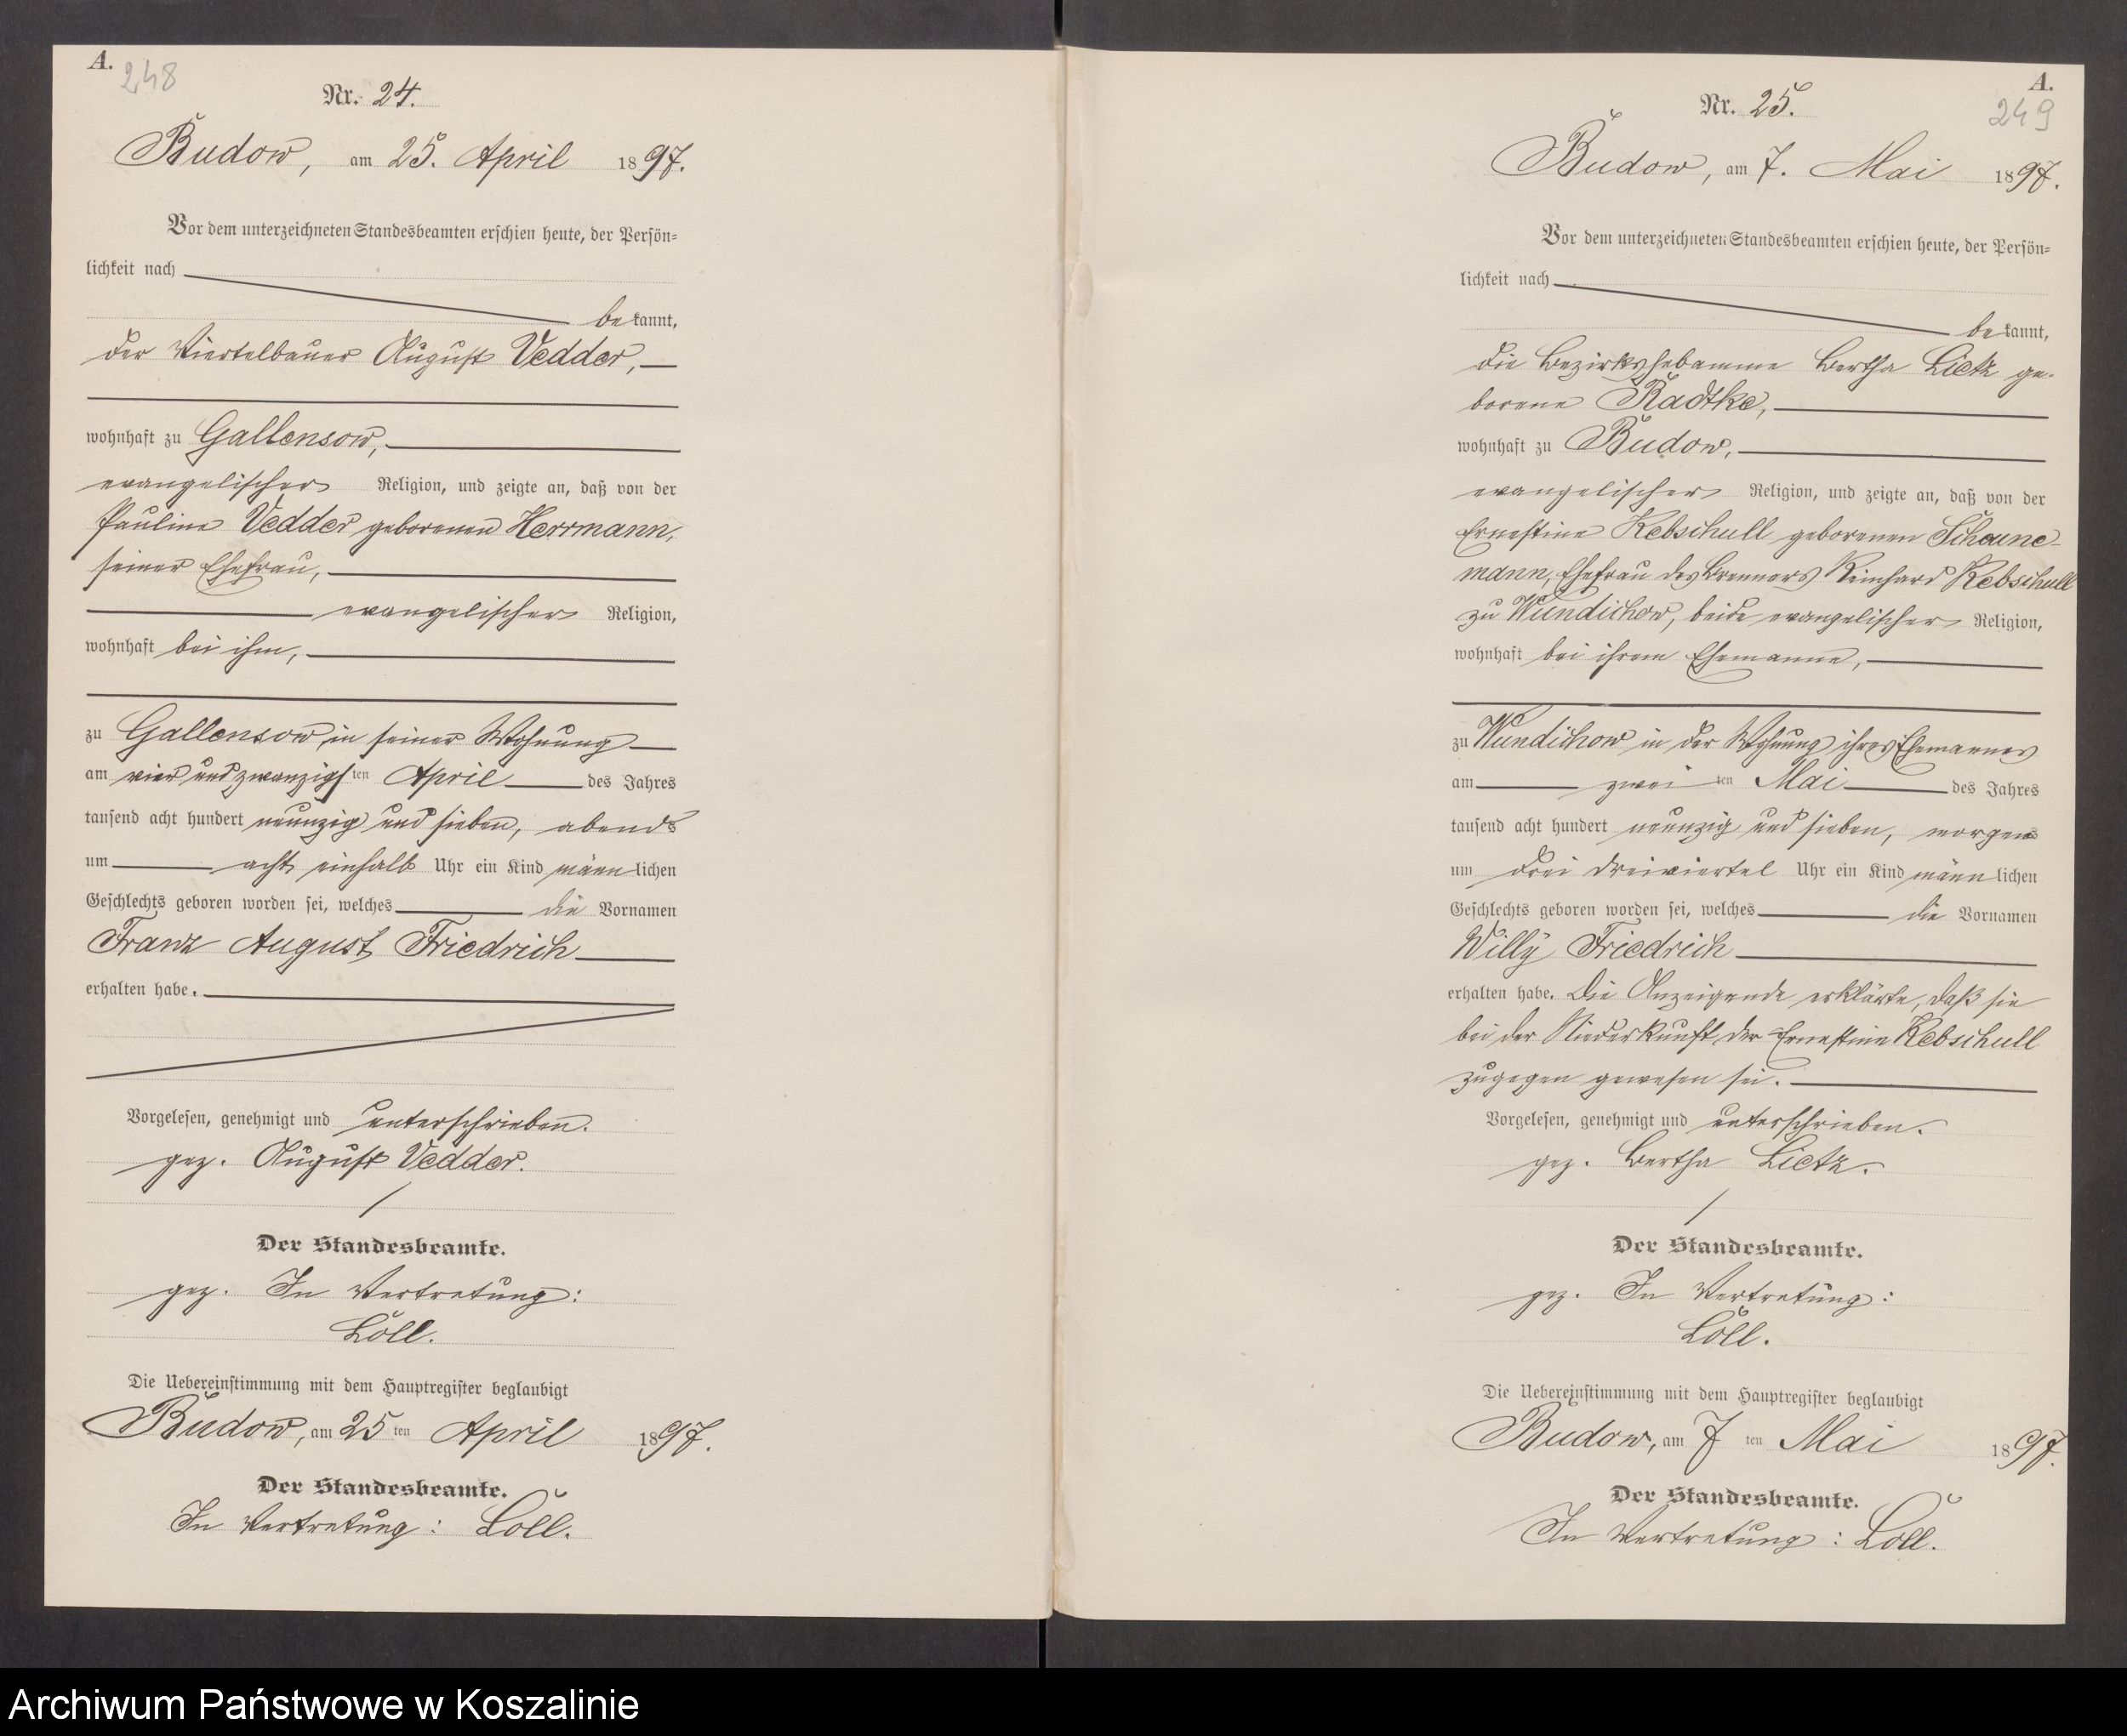 A.
248
Nr. 24.
Budow, am 25. April 1897.
Vor dem unterzeichneten Standesbeamten erschien heute, der Persön=
lichkeit nach
bekannt,
der Viertelbauer August Vedder,
wohnhaft zu Gallensow,
evangelischer Religion, und zeigte an, daß von der
Pauline Vedder geborenen Herrmann,
seiner Ehefrau,
evangelischer Religion,
wohnhaft bei ihm,
zu Gallensow, in seiner Wohnung
am vier und zwanzigsten April des Jahres
tausend acht hundert neunzig und sieben, abends
um acht einhalb Uhr ein Kind männlichen
Geschlechts geboren worden sei, welches die Vornamen
Franz August Friedrich
erhalten habe.
Vorgelesen, genehmigt und unterschrieben.
gez. August Vedder.
Der Standesbeamte.
gez. In Vertretung:
Loll.
Die Uebereinstimmung mit dem Hauptregister beglaubigt
Budow, am 25ten April 1897.
Der Standesbeamte.
In Vertretung: Loll.
A.
249
Nr. 25.
Budow, am 7. Mai 1897.
Vor dem unterzeichneten Standesbeamten erschien heute, der Persön=
lichkeit nach
bekannt,
die Bezirkshebamme Bertha Lietz ge-
borene Radtke,
wohnhaft zu Budow,
evangelischer Religion, und zeigte an, daß von der
Ernestine Kebschull geborenen Scheune-
mann, Ehefrau des Brenners Reinhard Kebschull
zu Wundichow, beide evangelischer Religion,
wohnhaft bei ihrem Ehemanne,
zu Wundichow in der Wohnung ihres Ehemannes
am zweiten Mai des Jahres
tausend acht hundert neunzig und sieben, morgens
um drei dreiviertel Uhr ein Kind männlichen
Geschlechts geboren worden sei, welches die Vornamen
Willy Friedrich
erhalten habe. Die Anzeigende erklärte, daß sie
bei der Niederkunft der Ernestine Kebschull
zugegen gewesen sei.
Vorgelesen, genehmigt und unterschrieben.
gez. Bertha Lietz.
Der Standesbeamte.
gez. In Vertretung:
Loll.
Die Uebereinstimmung mit dem Hauptregister beglaubigt
Budow, am 7ten Mai 1897.
Der Standesbeamte.
In Vertretung: Loll.
Archiwum Państwowe w Koszalinie